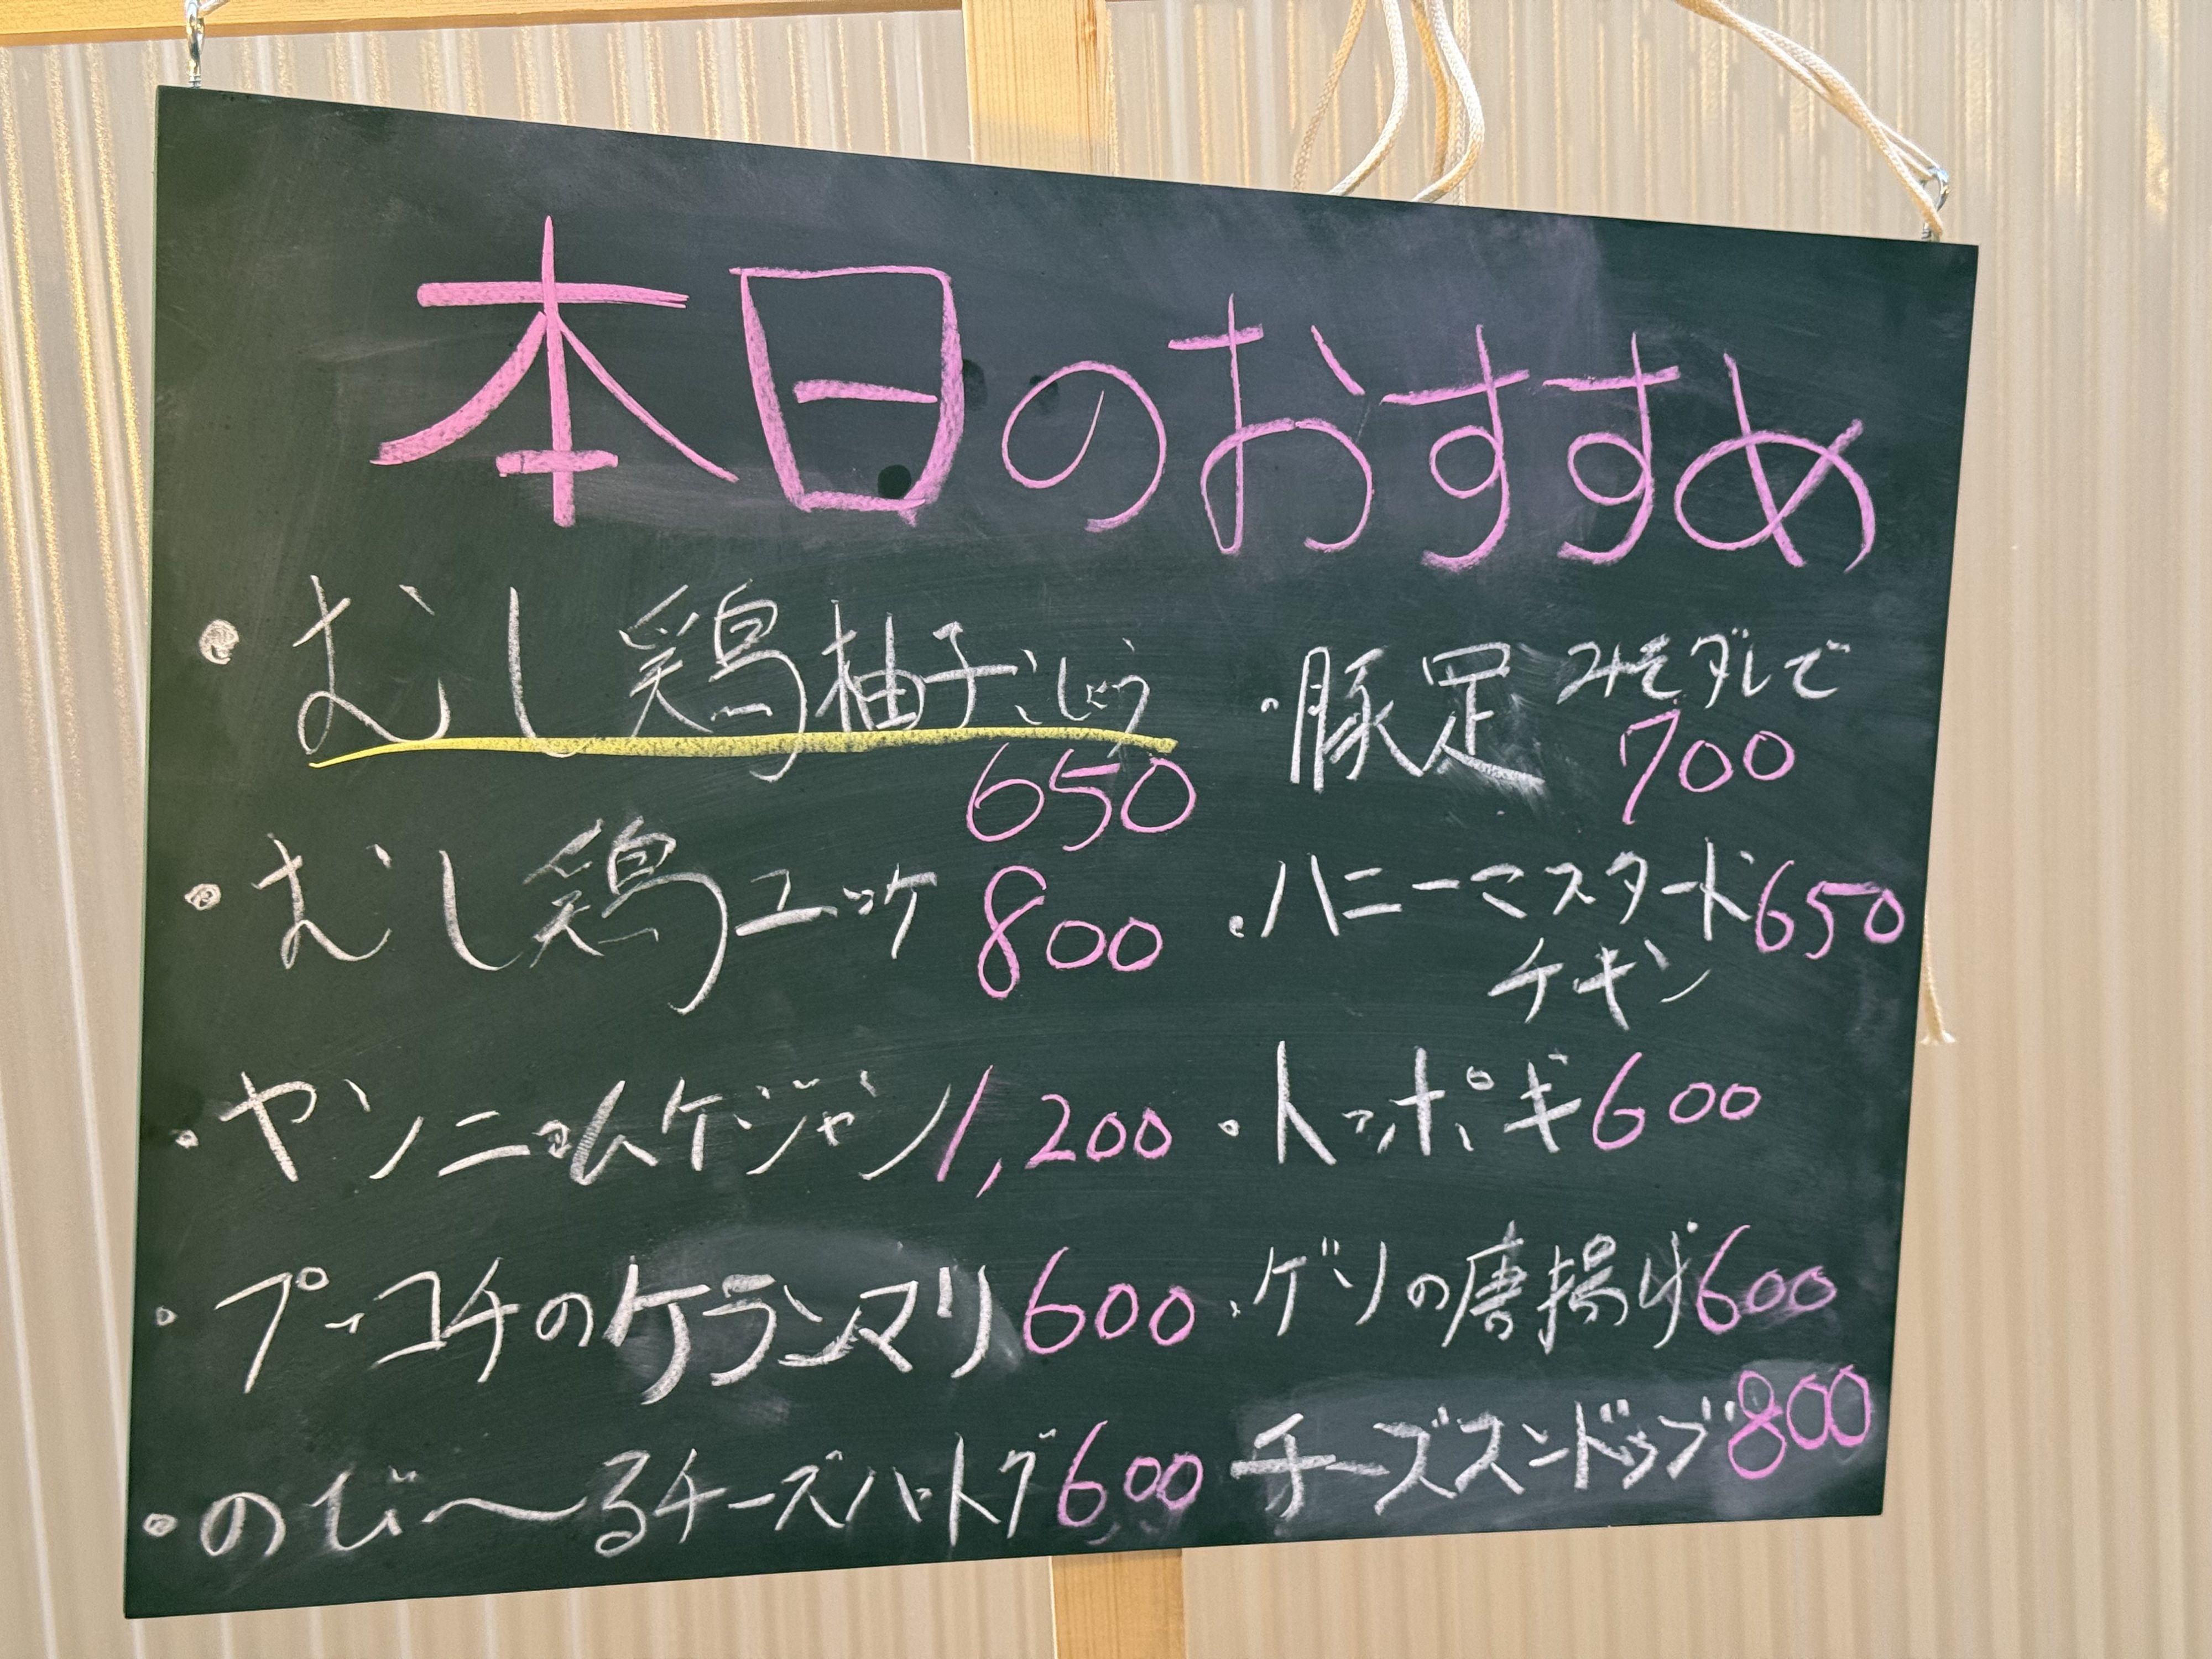 本日のおすすめ
・むし鶏柚子こしょう
650
・むし鶏ユッケ 800
・ヤンニョムケジャン 1,200
・プッコチのケランマリ 600
・のび〜るチーズハットグ 600
・豚足 みそダレで
700
・ハニーマスタード 650
チキン
・トッポギ 600
・ゲソの唐揚げ 600
チーズスンドゥブ 800